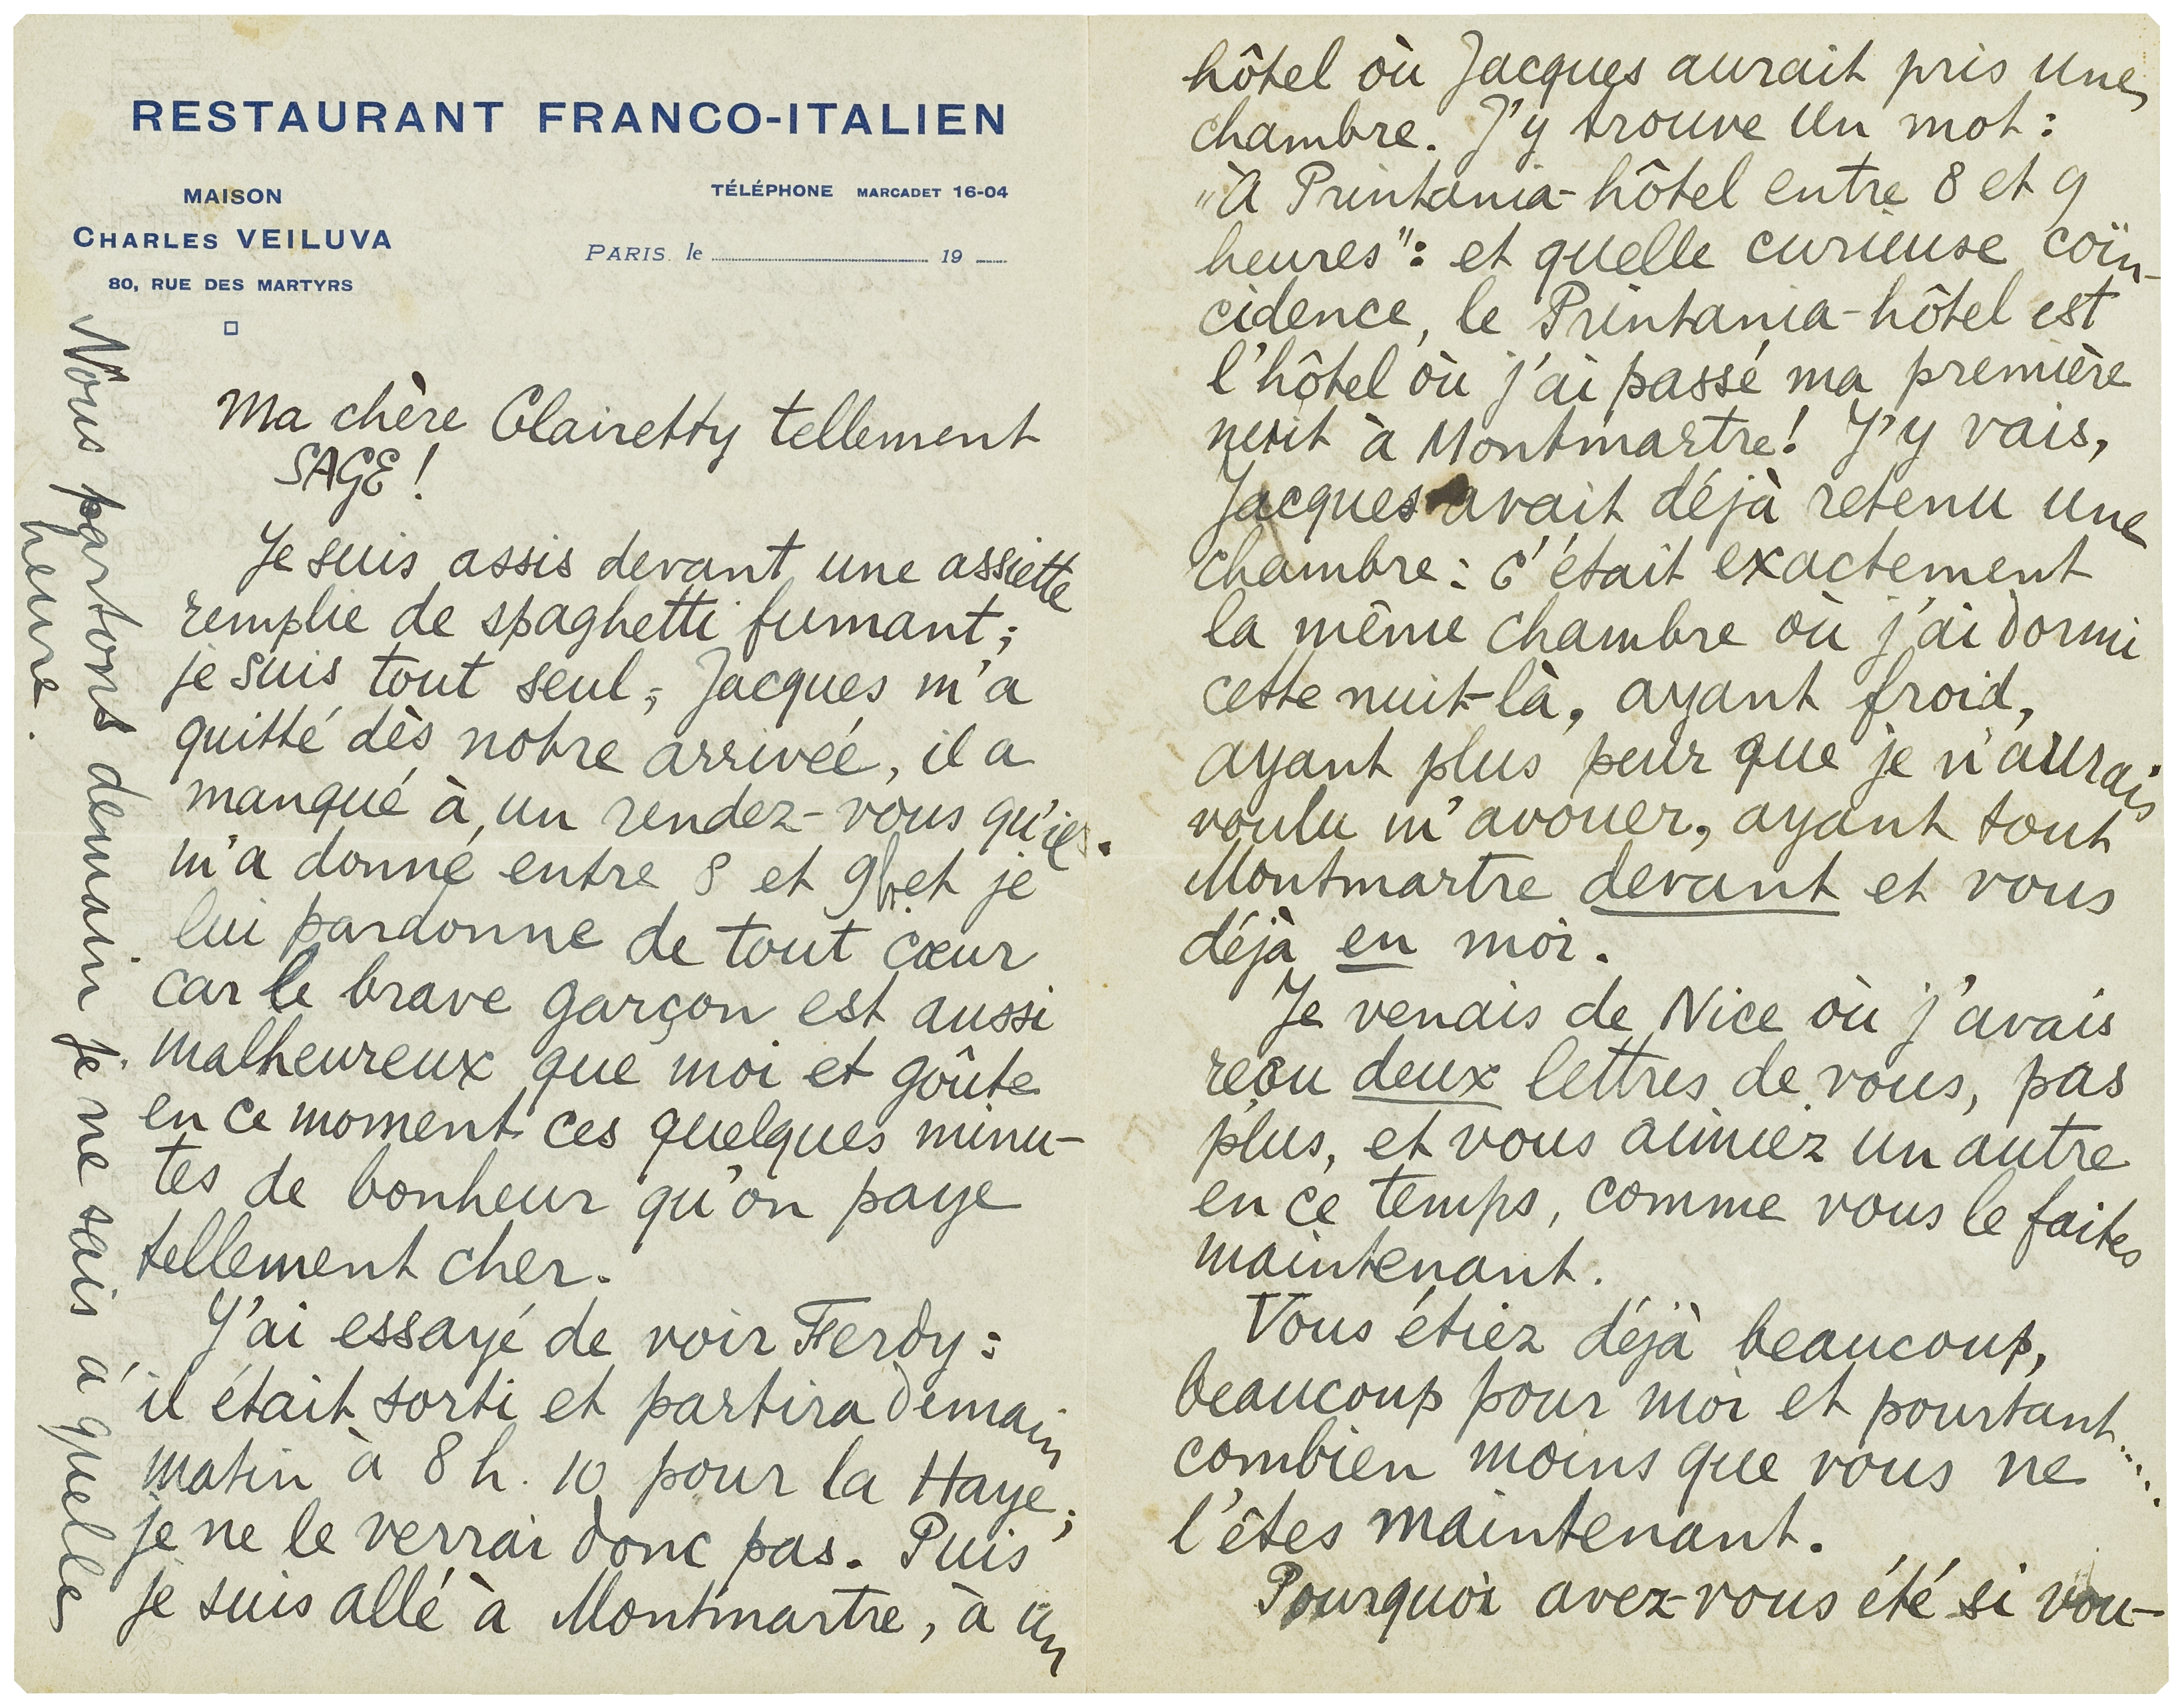 RESTAURANT FRANCO-ITALIEN
MAISON
CHARLES VEILUVA
80, RUE DES MARTYRS
TÉLÉPHONE MARCADET 16-04
PARIS. le 19
Ma chère Clairetty tellement
SAGE !
Je suis assis devant une assiette
remplie de spaghetti fumant ;
je suis tout seul ; Jacques m'a
quitté dès notre arrivée, il a
manqué à un rendez-vous qu'il
m'a donné entre 8 et 9h. et je
lui pardonne de tout cœur
car le brave garçon est aussi
malheureux que moi et goûte
en ce moment ces quelques minu-
tes de bonheur qu'on paye
tellement cher.
J'ai essayé de voir Ferdy :
il était sorti et partira demain
matin à 8 h. 10 pour la Haye ;
je ne le verrai donc pas. Puis
je suis allé à Montmartre, à un
Nous partons demain je ne sais à quelle
heure.
hôtel où Jacques aurait pris une
chambre. J'y trouve un mot :
"à Printania-hôtel entre 8 et 9
heures" : et quelle curieuse coïn-
cidence, le Printania-hôtel est
l'hôtel où j'ai passé ma première
nuit à Montmartre ! J'y vais,
Jacques avait déjà retenu une
chambre : c'était exactement
la même chambre où j'ai dormi
cette nuit-là, ayant froid,
ayant plus peur que je n'aurais
voulu m'avouer, ayant tout
Montmartre devant et vous
déjà en moi.
Je venais de Nice où j'avais
reçu deux lettres de vous, pas
plus, et vous aimiez un autre
en ce temps, comme vous le faites
maintenant.
Vous étiez déjà beaucoup,
beaucoup pour moi et pourtant.....
combien moins que vous ne
l'êtes maintenant.
Pourquoi avez-vous été si vou-